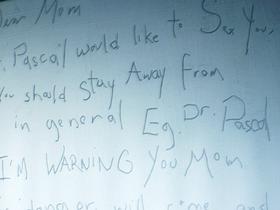 Dear Mom
. Pascal would like to Say You,
You should Stay Away From
in general Eg. Dr. Pascal
I'M WARNING YOU MOM
will come and